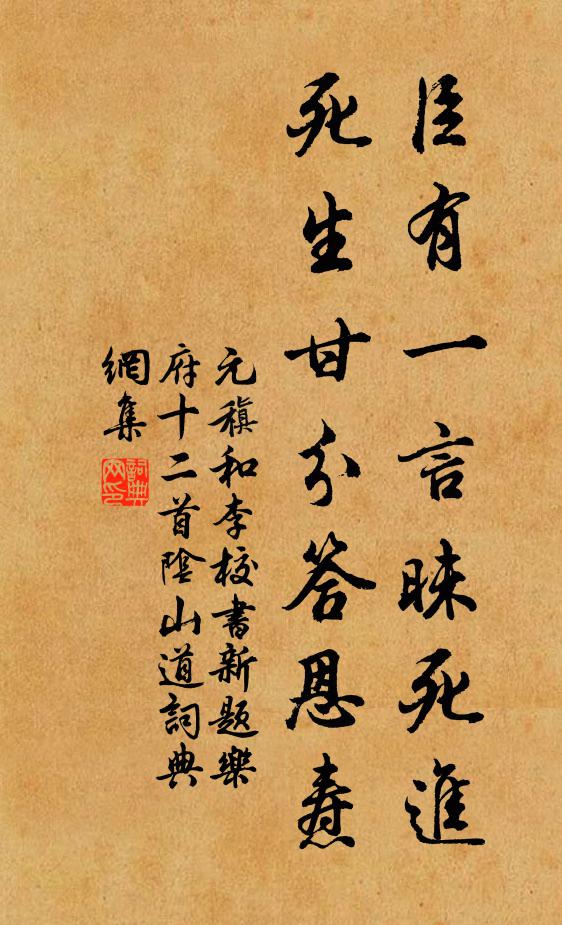 臣有一言昧死進
死生甘分答恩焘
元稹和李校書新題樂
府十二首陰山道詞典
網集
詞典
网印